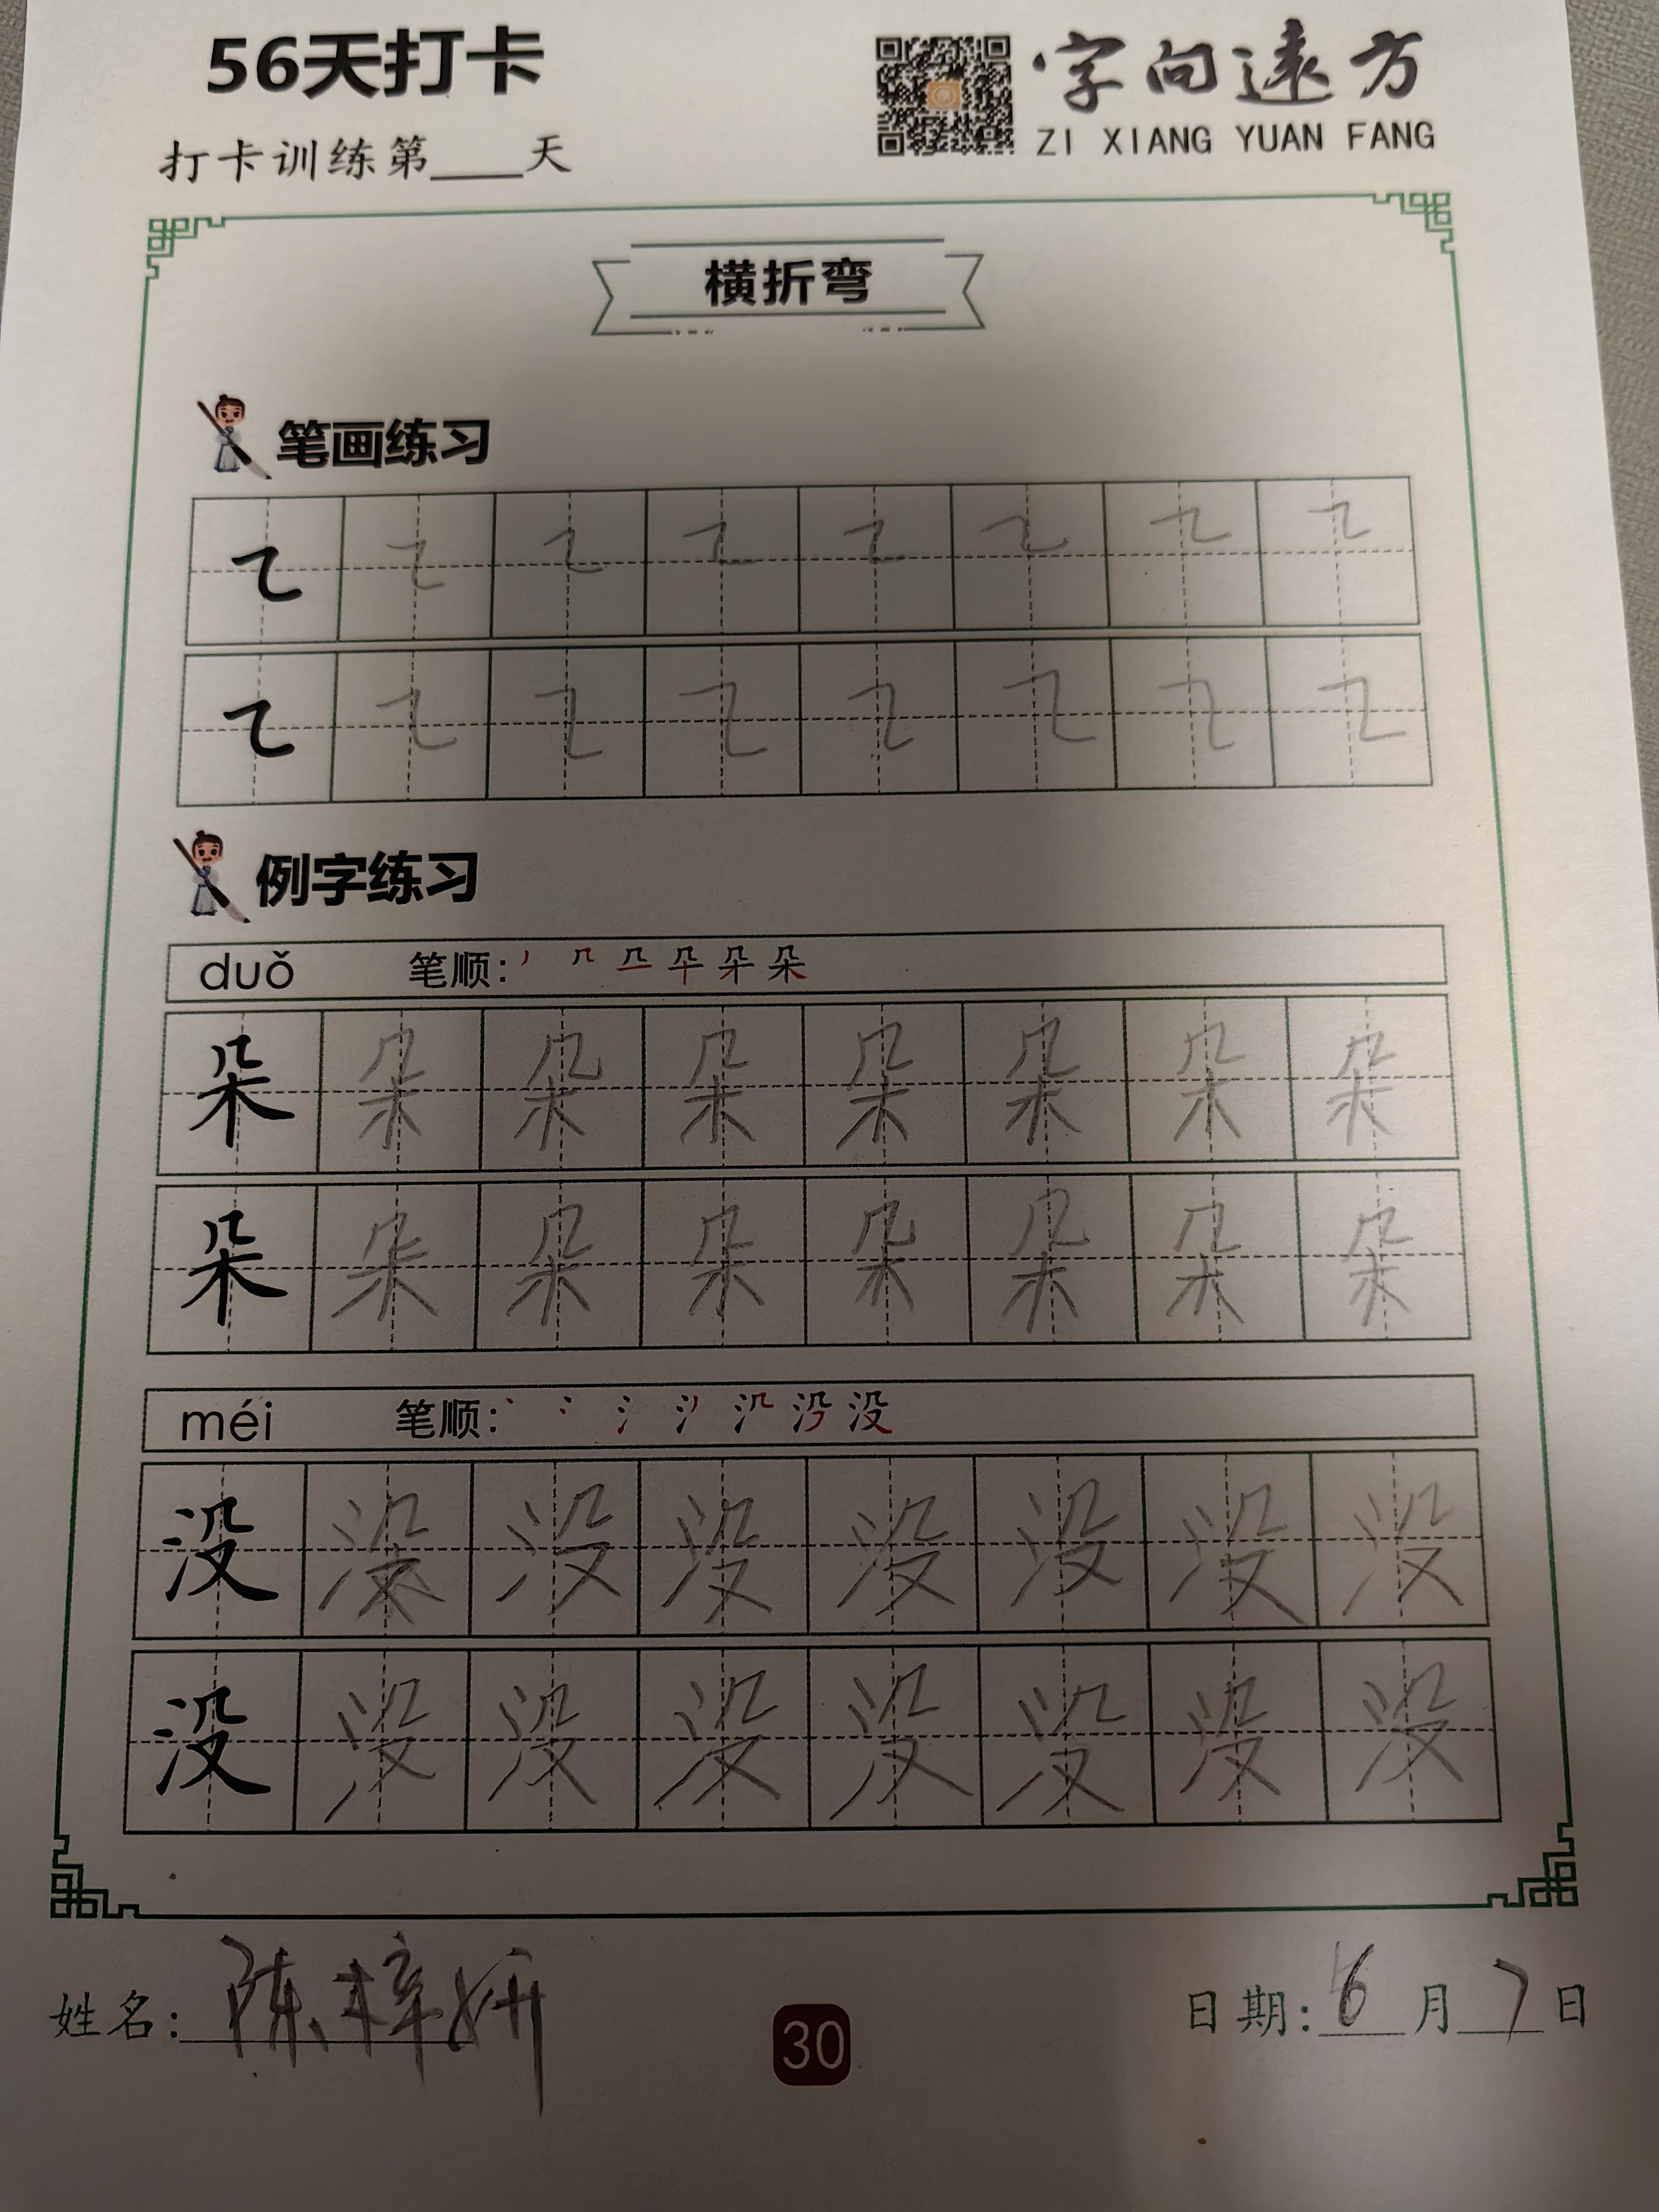 56天打卡
字向远方
ZI XIANG YUAN FANG
打卡训练第____天
横折弯
笔画练习
㇍ ㇍ ㇍ ㇍ ㇍ ㇍ ㇍ ㇍
㇍ ㇍ ㇍ ㇍ ㇍ ㇍ ㇍ ㇍
例字练习
duǒ 笔顺:
朵 朵 朵 朵 朵 朵 朵 朵
朵 朵 朵 朵 朵 朵 朵 朵
méi 笔顺:
没 没 没 没 没 没 没 没
没 没 没 没 没 没 没 没
姓名: 陈梓妍
30
日期: 6月7日